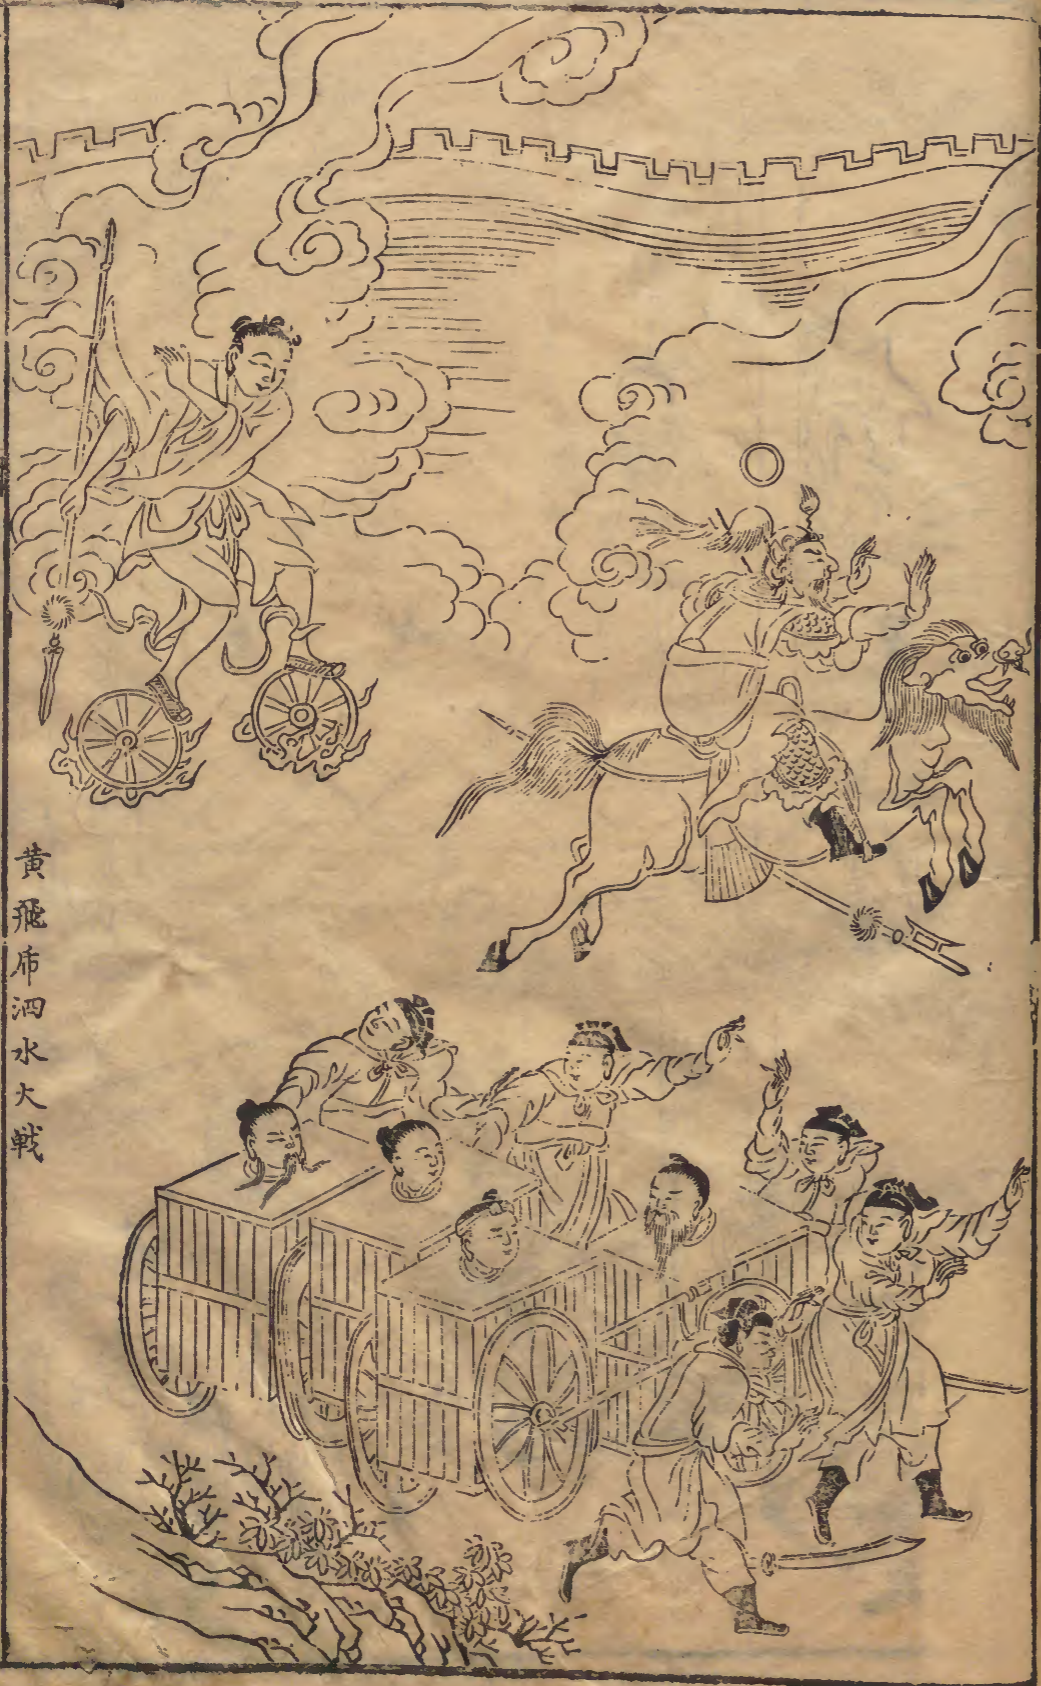 黄飛虎泗水大戰